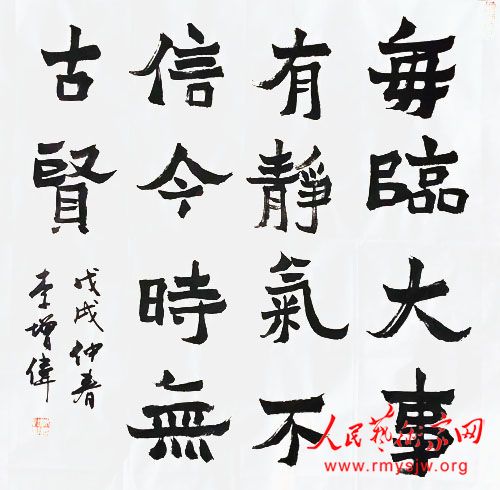 每臨大事
有靜氣不
信今時無
古賢
戊戌仲春
李增偉
人民藝術家网
www.rmysjw.org